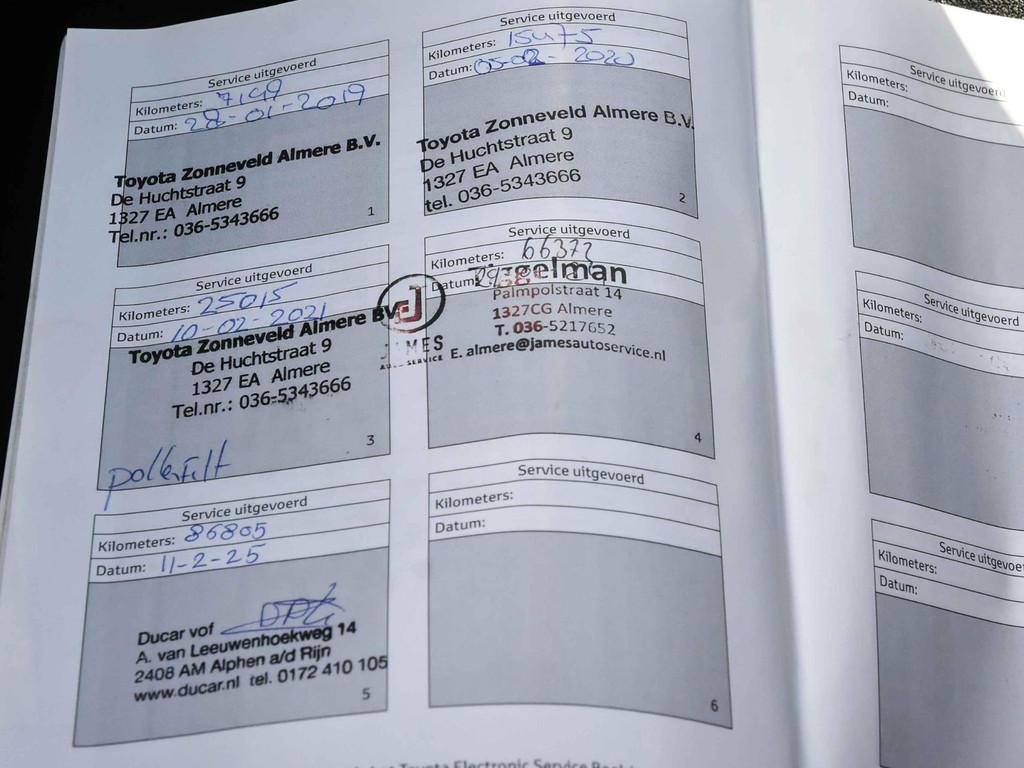 Service uitgevoerd
Kilometers: 7149
Datum: 28-01-2019
Toyota Zonneveld Almere B.V.
De Huchtstraat 9
1327 EA Almere
Tel.nr.: 036-5343666
1
Service uitgevoerd
Kilometers: 15475
Datum: 05-02-2020
Toyota Zonneveld Almere B.V.
De Huchtstraat 9
1327 EA Almere
tel. 036-5343666
2
Service uitgevoerd
Kilometers: 25015
Datum: 10-02-2021
Toyota Zonneveld Almere BV
De Huchtstraat 9
1327 EA Almere
Tel.nr.: 036-5343666
pollenfilt
3
Service uitgevoerd
Kilometers: 66372
Datum:
J
JAMES
AUTO SERVICE
Palmpolstraat 14
1327CG Almere
T. 036-5217652
E. almere@jamesautoservice.nl
4
Service uitgevoerd
Kilometers: 86805
Datum: 11-2-25
Ducar vof
A. van Leeuwenhoekweg 14
2408 AM Alphen a/d Rijn
www.ducar.nl tel. 0172 410 105
5
Service uitgevoerd
Kilometers:
Datum:
6
Service uitgevoerd
Kilometers:
Datum:
Service uitgevoerd
Kilometers:
Datum:
Service uitgevoe
Kilometers:
Datum:
Toyota Electronic Service